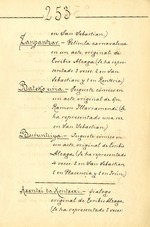 253
en San Sebastian)
Zanganzar.- Pelicula carnavalesca
en un acto original de
Toribio Alzaga (Se ha repre-
sentado 1 vez: en San
Sebastian y 1 en Renteria)
- Juguete cómico en
un acto original de
Ramon Illarramendi (Se
ha representado una vez
en San Sebastian)
- Juguete cómico en
un acto original de Toribio
Alzaga. (Se ha representado
4 veces: 2 en San Sebastian
1 en Placencia y 1 en Irún)
- Diálogo
original de Toribio Alzaga
(Se ha representado 3 veces